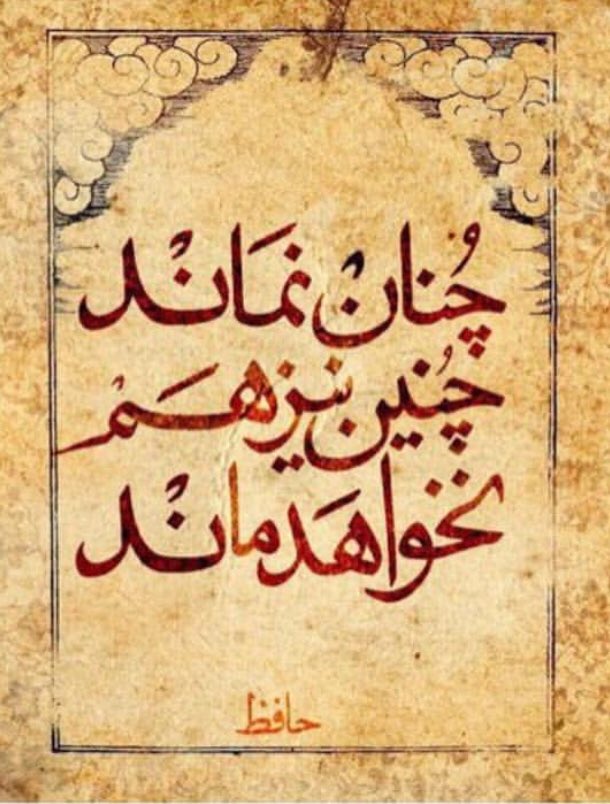 چُنانْ نمَانْد
چُنین نیز هَمْ
نخواهَد مانْد
حافظ